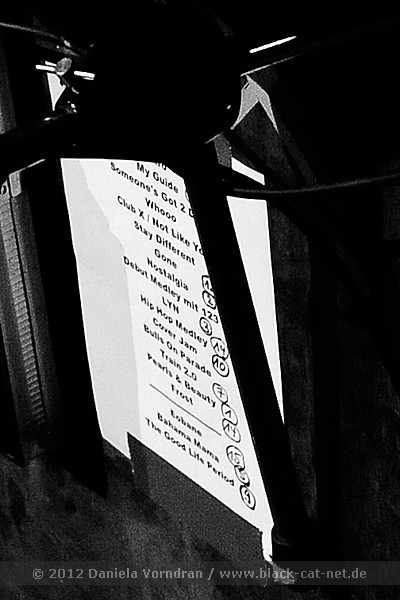 My Guide
Someone's Got 2 D
Whooo
Club X / Not Like Yo
Stay Different
Gone
Nostalgia
Debut Medley mit 123
LYN
Hip Hop Medley
Cover Jam
Bulls On Parade
Train 2.0
Pearls & Beauty
Frost
Eobane
Bahama Mama
The Good Life Period
© 2012 Daniela Vorndran / www.black-cat-net.de